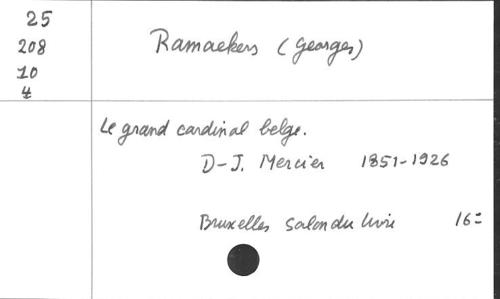 25
208
10
4
Ramaekers (Georges)
Le grand cardinal belge.
D-J. Mercier 1851-1926
Bruxelles Salon du livre 16=